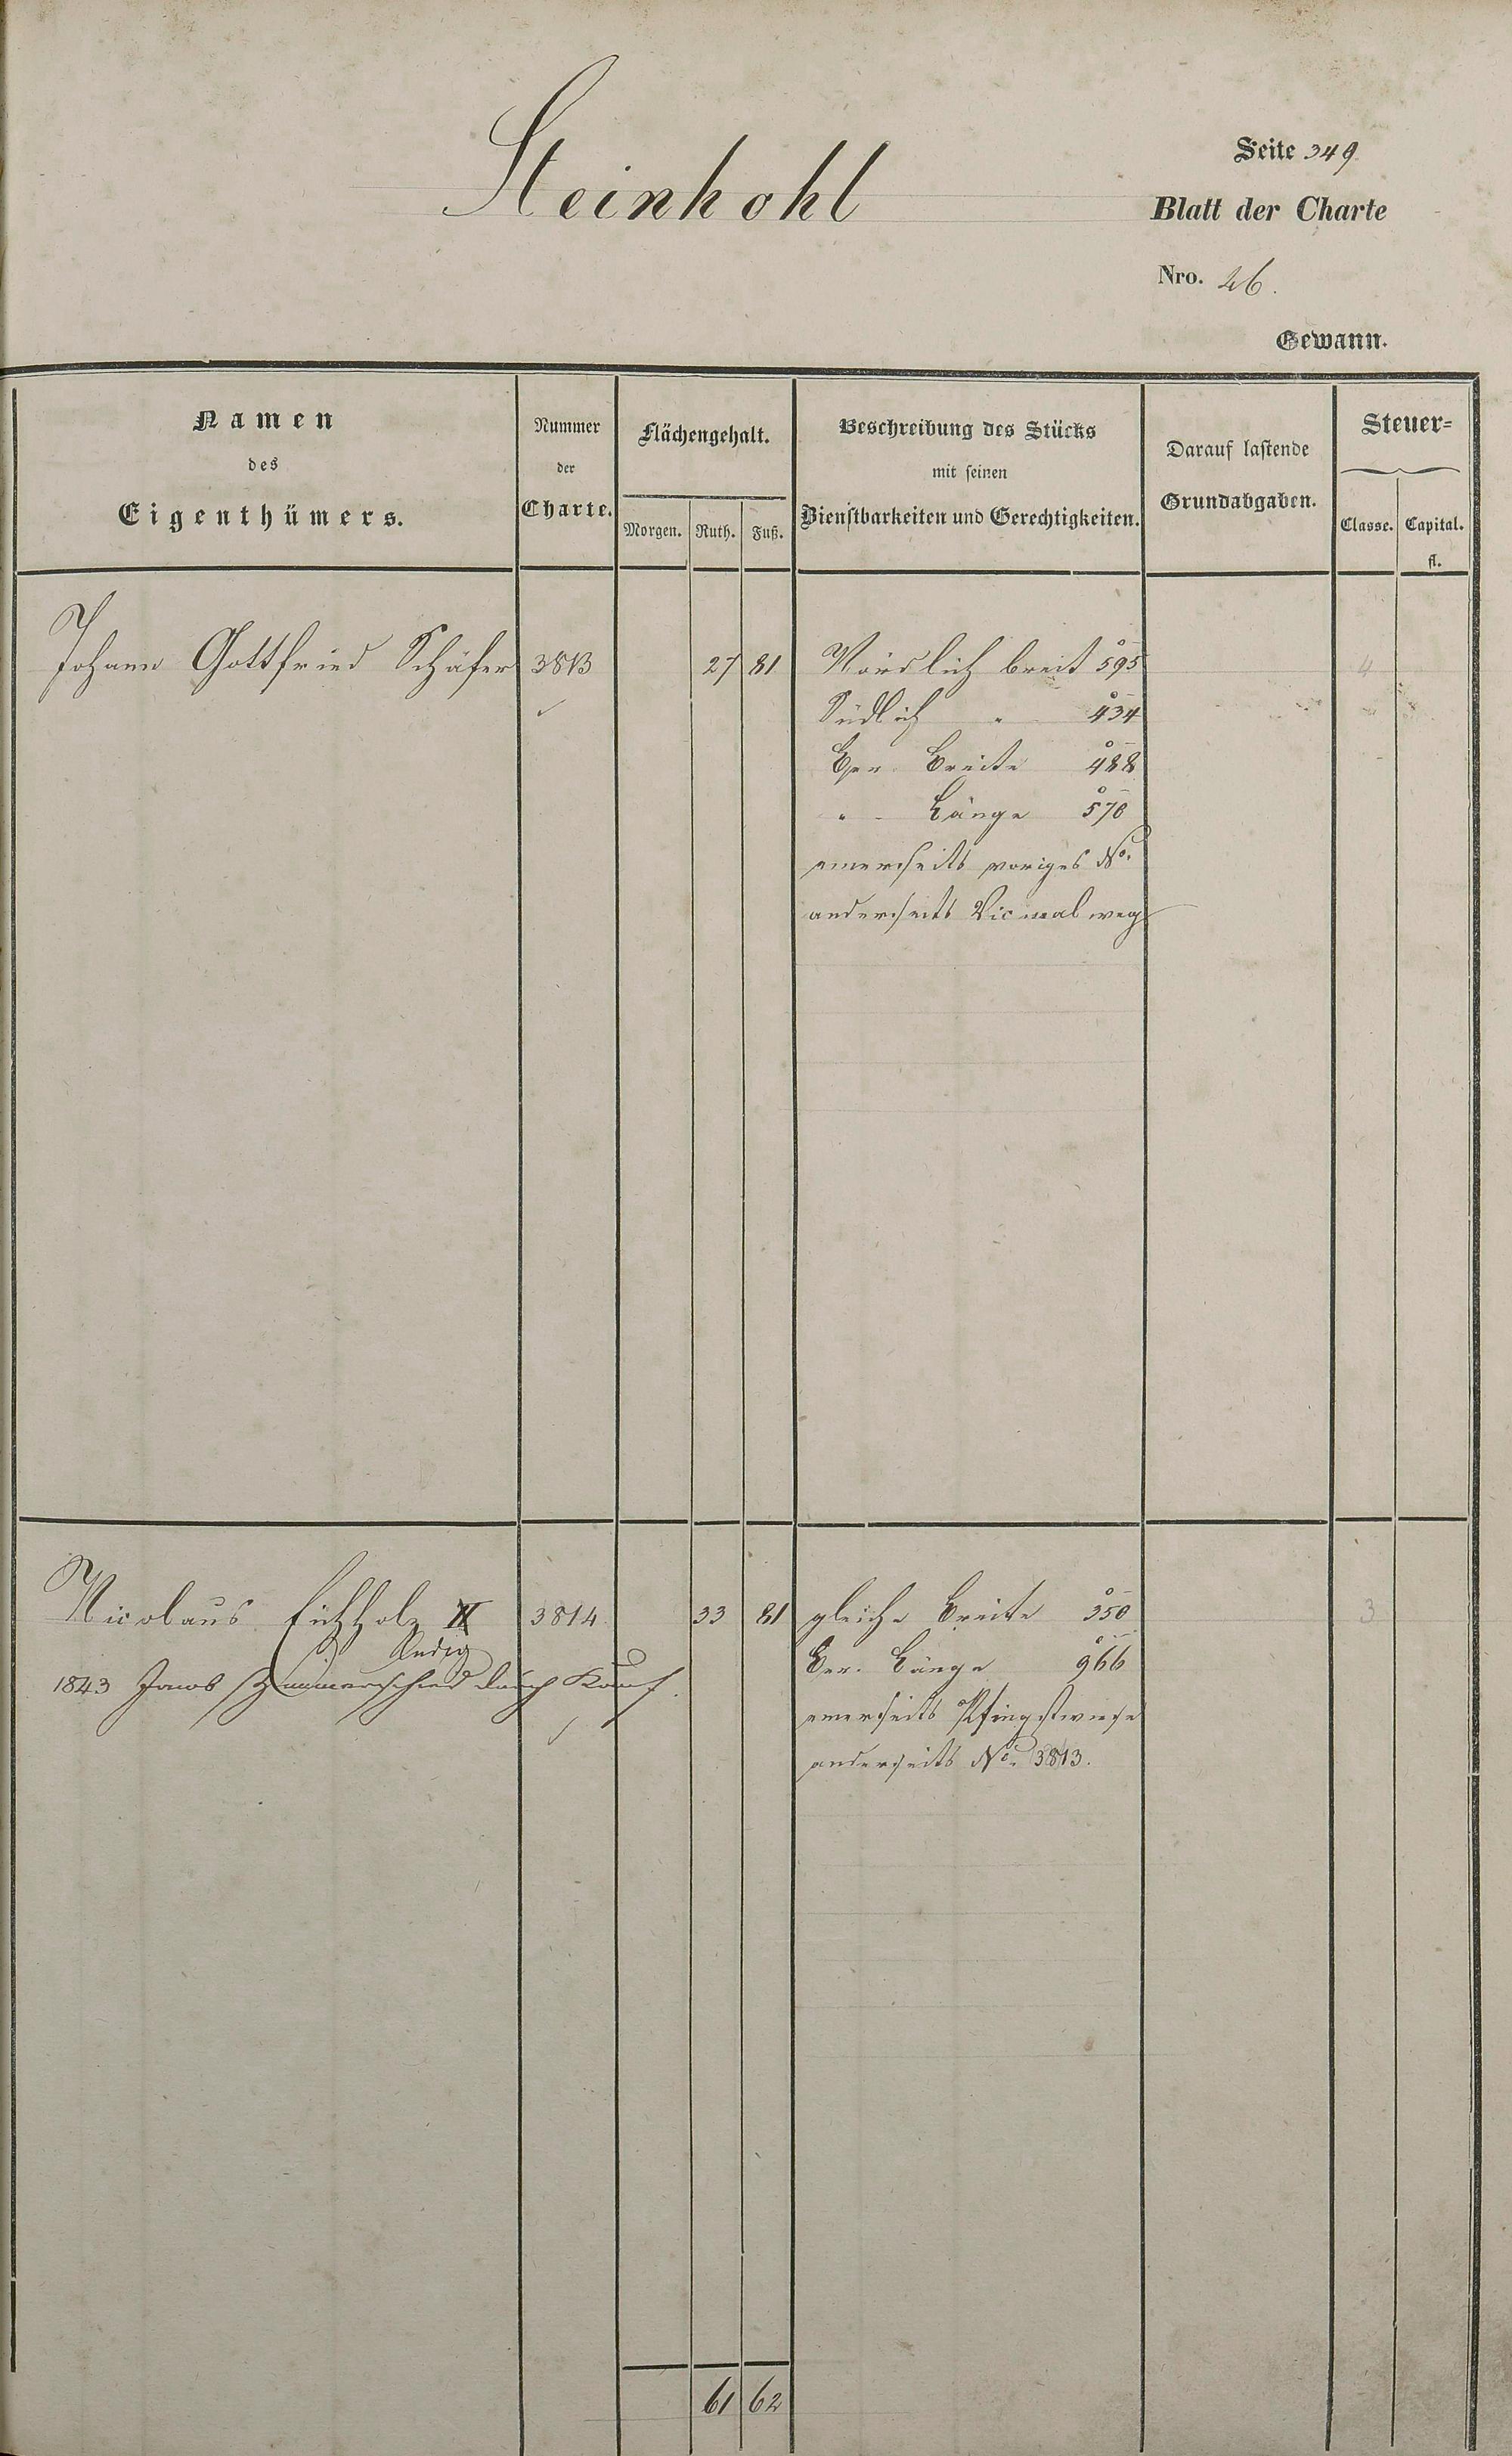 Steinhohl
Seite 349
Blatt der Charte
Nro. 26.
Gewann.
Namen
des
Eigenthümers.
Nummer
der
Charte.
Flächengehalt.
Morgen. Ruth. Fuß.
Beschreibung des Stücks
mit seinen
Dienstbarkeiten und Gerechtigkeiten.
Darauf lastende
Grundabgaben.
Steuer-
Classe. Capital.
fl.
Johann Gottfried Schäfer 3813 27 81 Nördlich breit 595 4
Südlich " 434
Ger. Breite 488
" Länge 570
einerseits voriges No.
anderseits Vicinalweg
Nicolaus Eichholz II 3814 33 81 gleiche Breite 350 3
Ger. Länge 966
1843 Jacob durch Kauf.
einerseits Pfingstwiese
anderseits No. 3813.
61 62